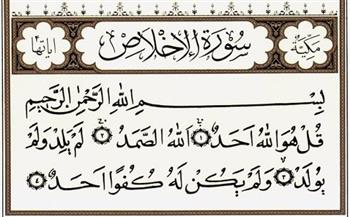 مكية سورة الإخلاص آياتها ٤
بِسْمِ اللَّهِ الرَّحْمَٰنِ الرَّحِيمِ
قُلْ هُوَ اللَّهُ أَحَدٌ ١ اللَّهُ الصَّمَدُ ٢ لَمْ يَلِدْ وَلَمْ
يُولَدْ ٣ وَلَمْ يَكُنْ لَهُ كُفُوًا أَحَدٌ ٤